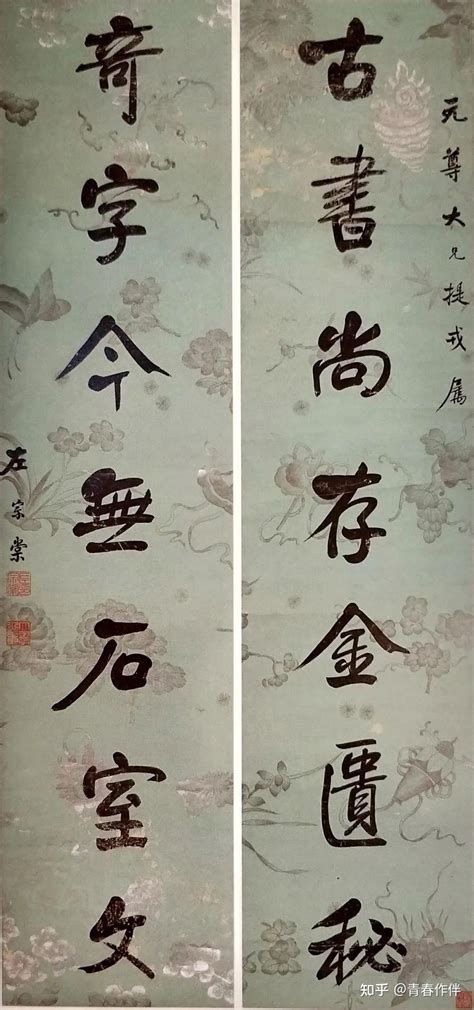 尊大兄提戎属
古書尚存金匱秘
竒字今無石室文
左宗棠
知乎 @青春作伴